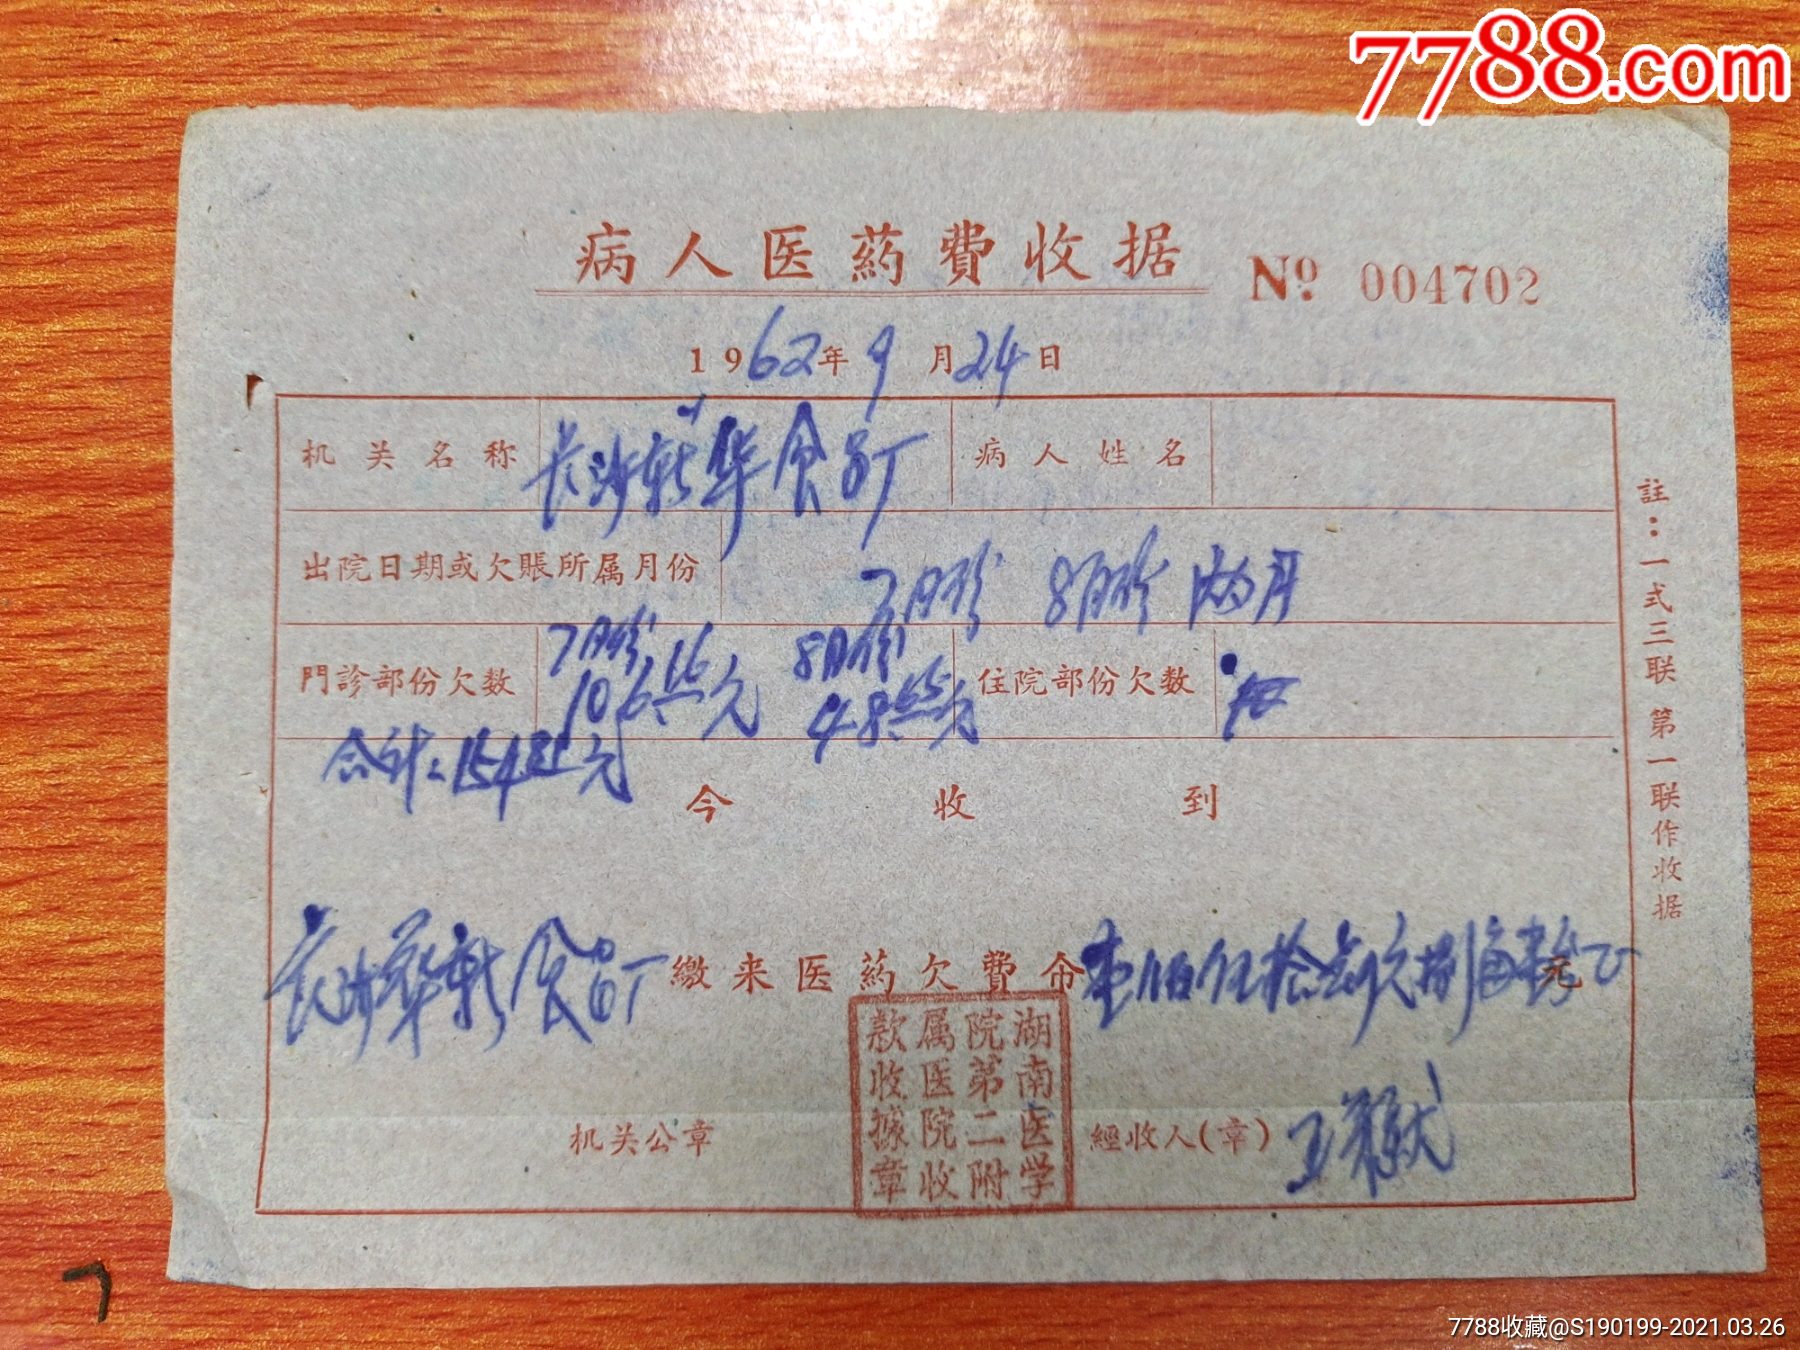 7788.com
病人医葯費收据
№ 004702
1962年9月24日
机关名称 长沙新华食品厂 病人姓名
出院日期或欠賬所属月份 7月份 8月份 两月
門診部份欠数 7月份 106 元 8月份 48 元 住院部份欠数
合計: 154 元
今收到
長沙華新食品厂 繳来医药欠費 壹佰伍拾 元
机关公章 經收人(章) 王
湖南医学
院第二附
属医院收
款收據章
註：一式三联 第一联作收据
7788收藏@S190199-2021.03.26